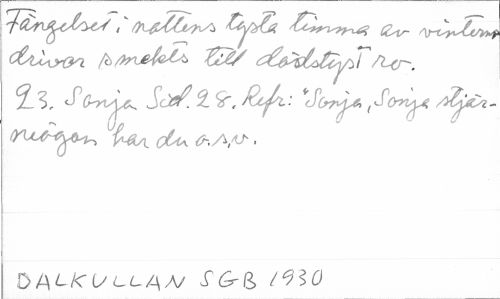 Fängelset i nattens tysta timma av vinterns
drivor smekts till dödstyst ro.
23. Sonja Sid. 28. Refr: "Sonja, Sonja stjär-
neögon har du o.s.v.
DALKULLAN SGB 1930